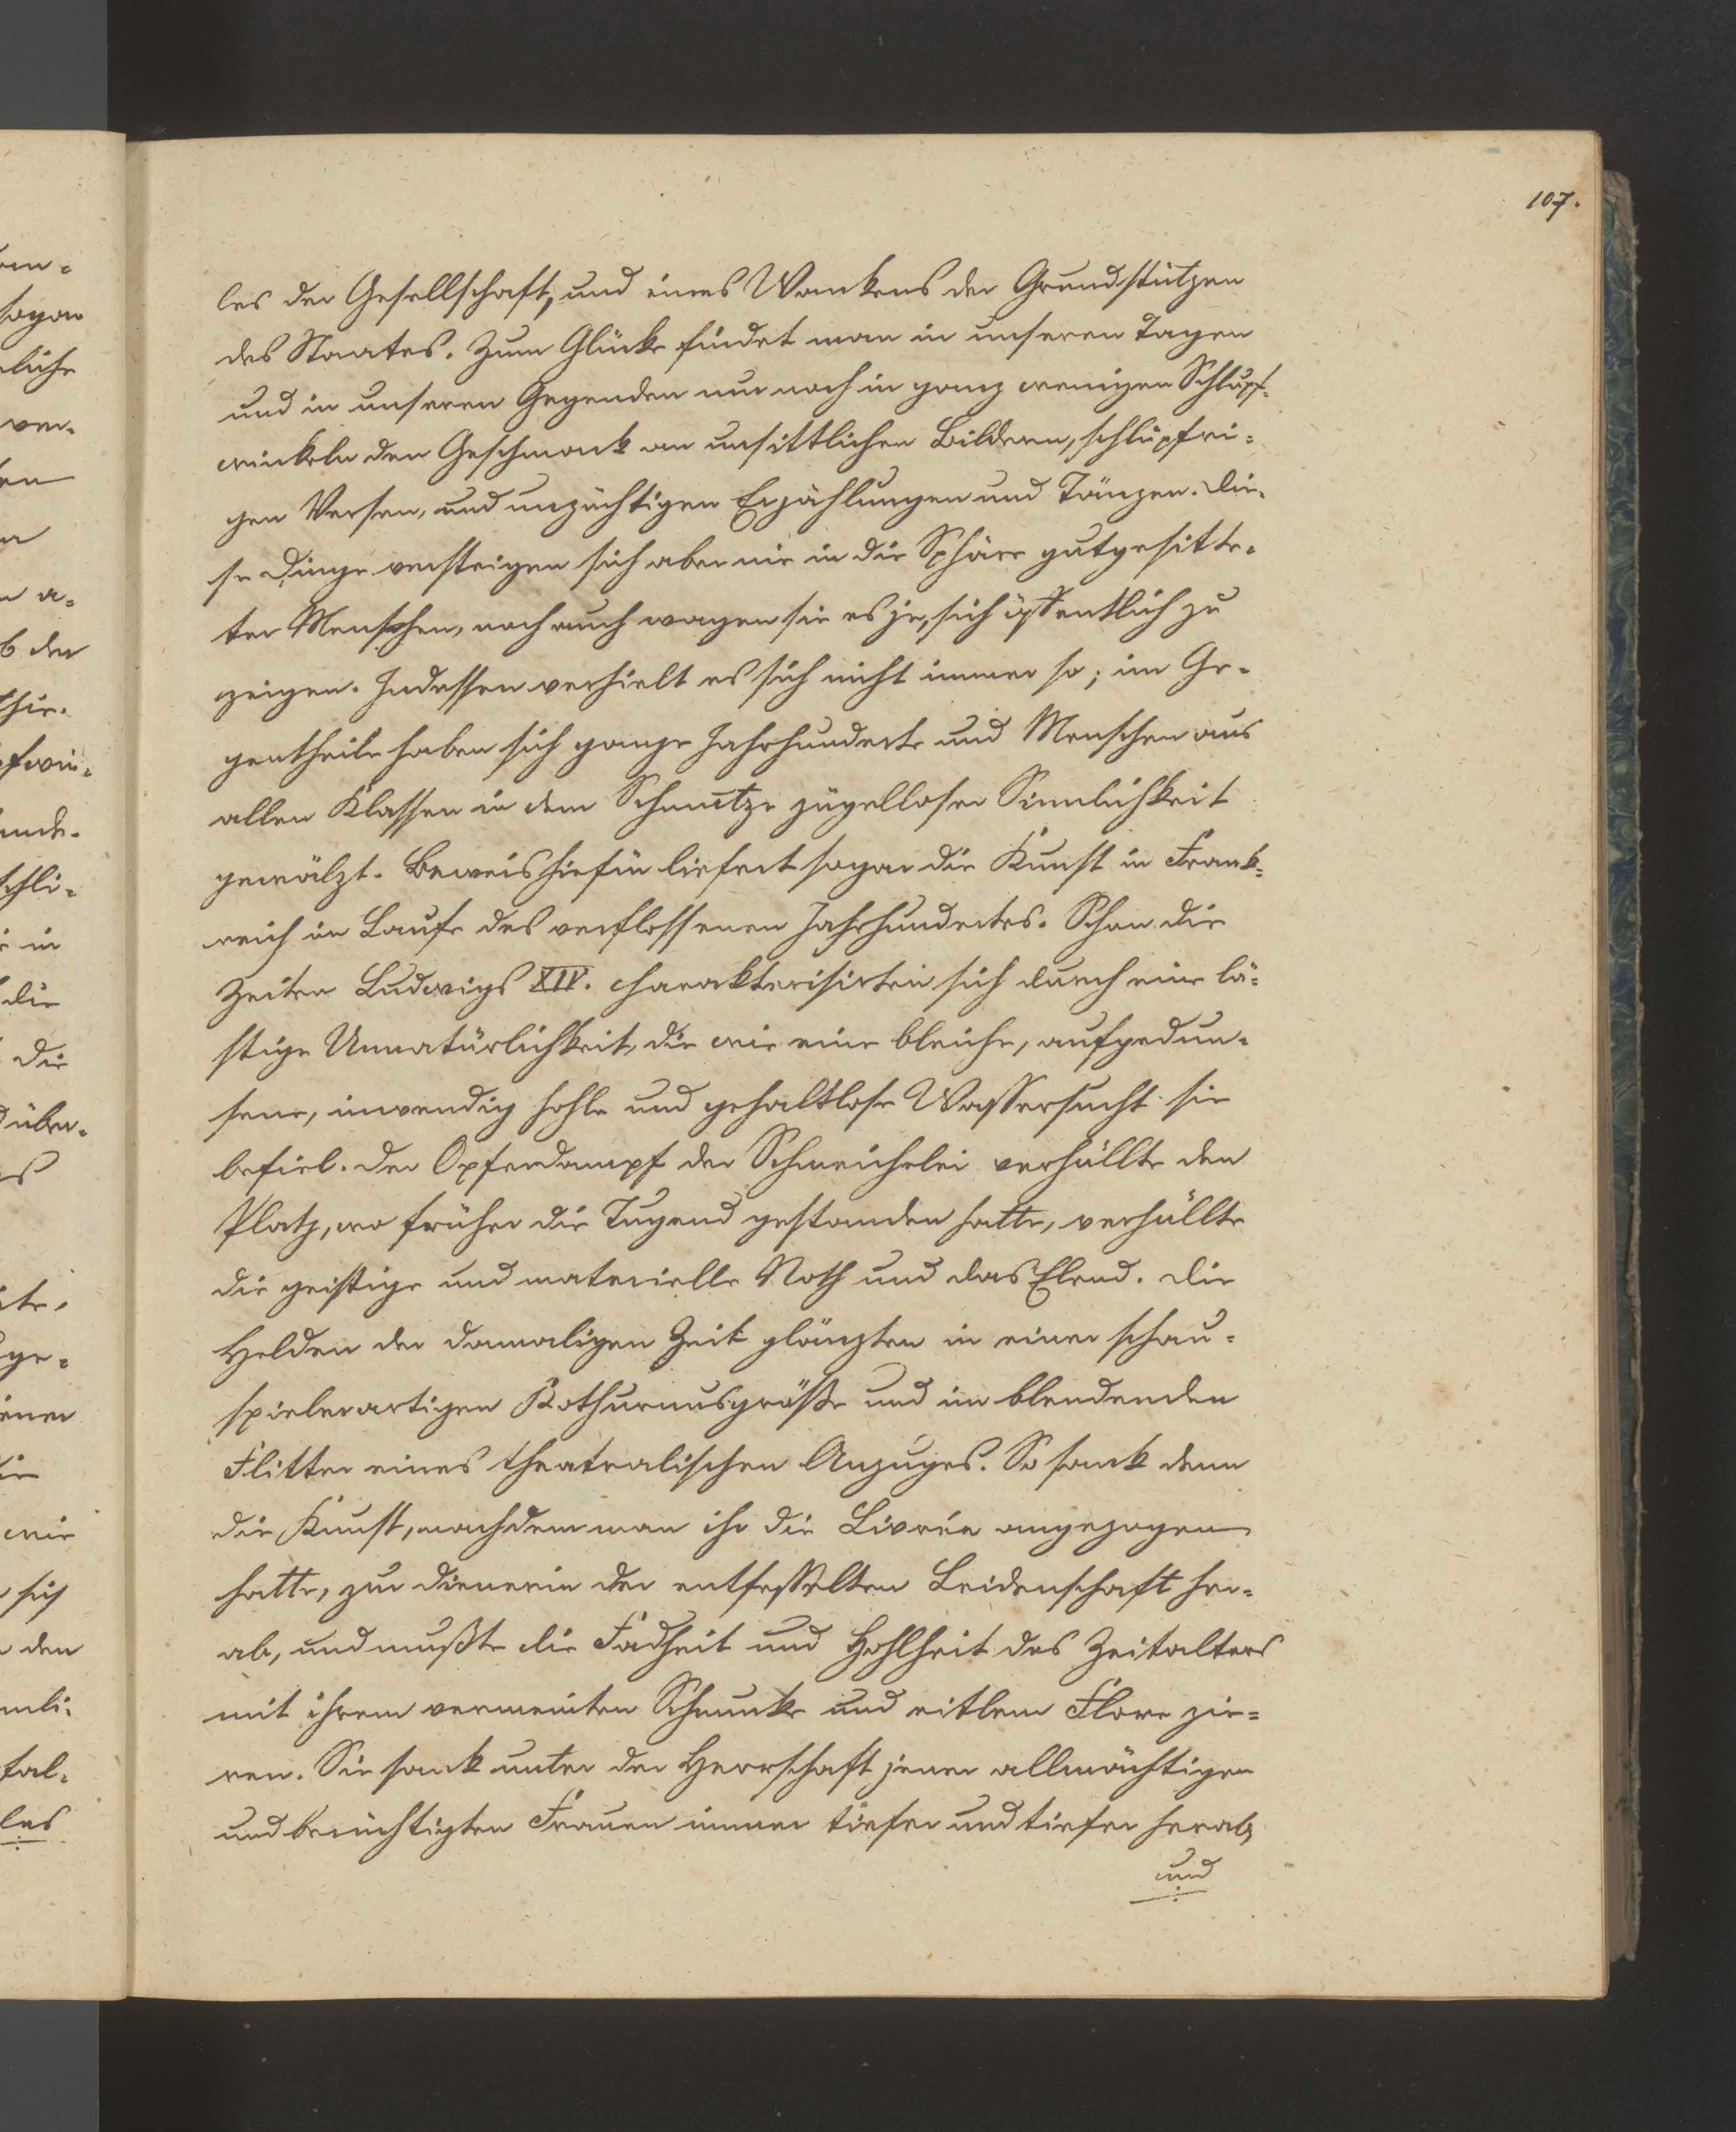 107.
les der Gesellschaft, und eines Wankens der Grundstützen
des Staates. Zum Glücke findet man in unseren Tagen
und in unseren Gegenden nur noch in ganz wenigen Schlupf-
winkeln den Geschmack an unsittlichen Bildern, schlüpfri-
gen Versen, und unzüchtigen Erzählungen und Tänzen. Die-
se Dinge versteigen sich aber nie in die Sphäre gutgesitte-
ter Menschen, noch auch wagen sie es je, sich öffentlich zu
zeigen. Indessen verhielt es sich nicht immer so; im Ge-
gentheile haben sich ganze Jahrhunderte und Menschen aus
allen Klassen in dem Schmutze zügelloser Sinnlichkeit
gewälzt. Beweis hiefür liefert sogar die Kunst in Frank-
reich im Laufe des verflossenen Jahrhundertes. Schon die
Zeiten Ludwigs XIV. charakterisirten sich durch eine lä-
stige Unnatürlichkeit, die wie eine bleiche, aufgedun-
sene, inwendig hohle und gehaltlose Wassersucht sie
befiel. Der Opferdampf der Schmeichelei verhüllte den
Platz, wo früher die Tugend gestanden hatte, verhüllte
die geistige und materielle Noth und das Elend. Die
Helden der damaligen Zeit glänzten in einer schau-
spielerartigen Kothurnusgröße und im blendenden
Flitter eines theatralischen Anzuges. So sank denn
die Kunst, nachdem man ihr die Livrée angezogen
hatte, zur Dienerin der entfesselten Leidenschaft her-
ab, und mußte die Fadheit und Hohlheit des Zeitalters
mit ihrem vermeinten Schmucke und eitlem Flore zie-
ren. Sie sank unter der Herrschaft jener allmächtigen
und berüchtigten Frauen immer tiefer und tiefer herab,
und